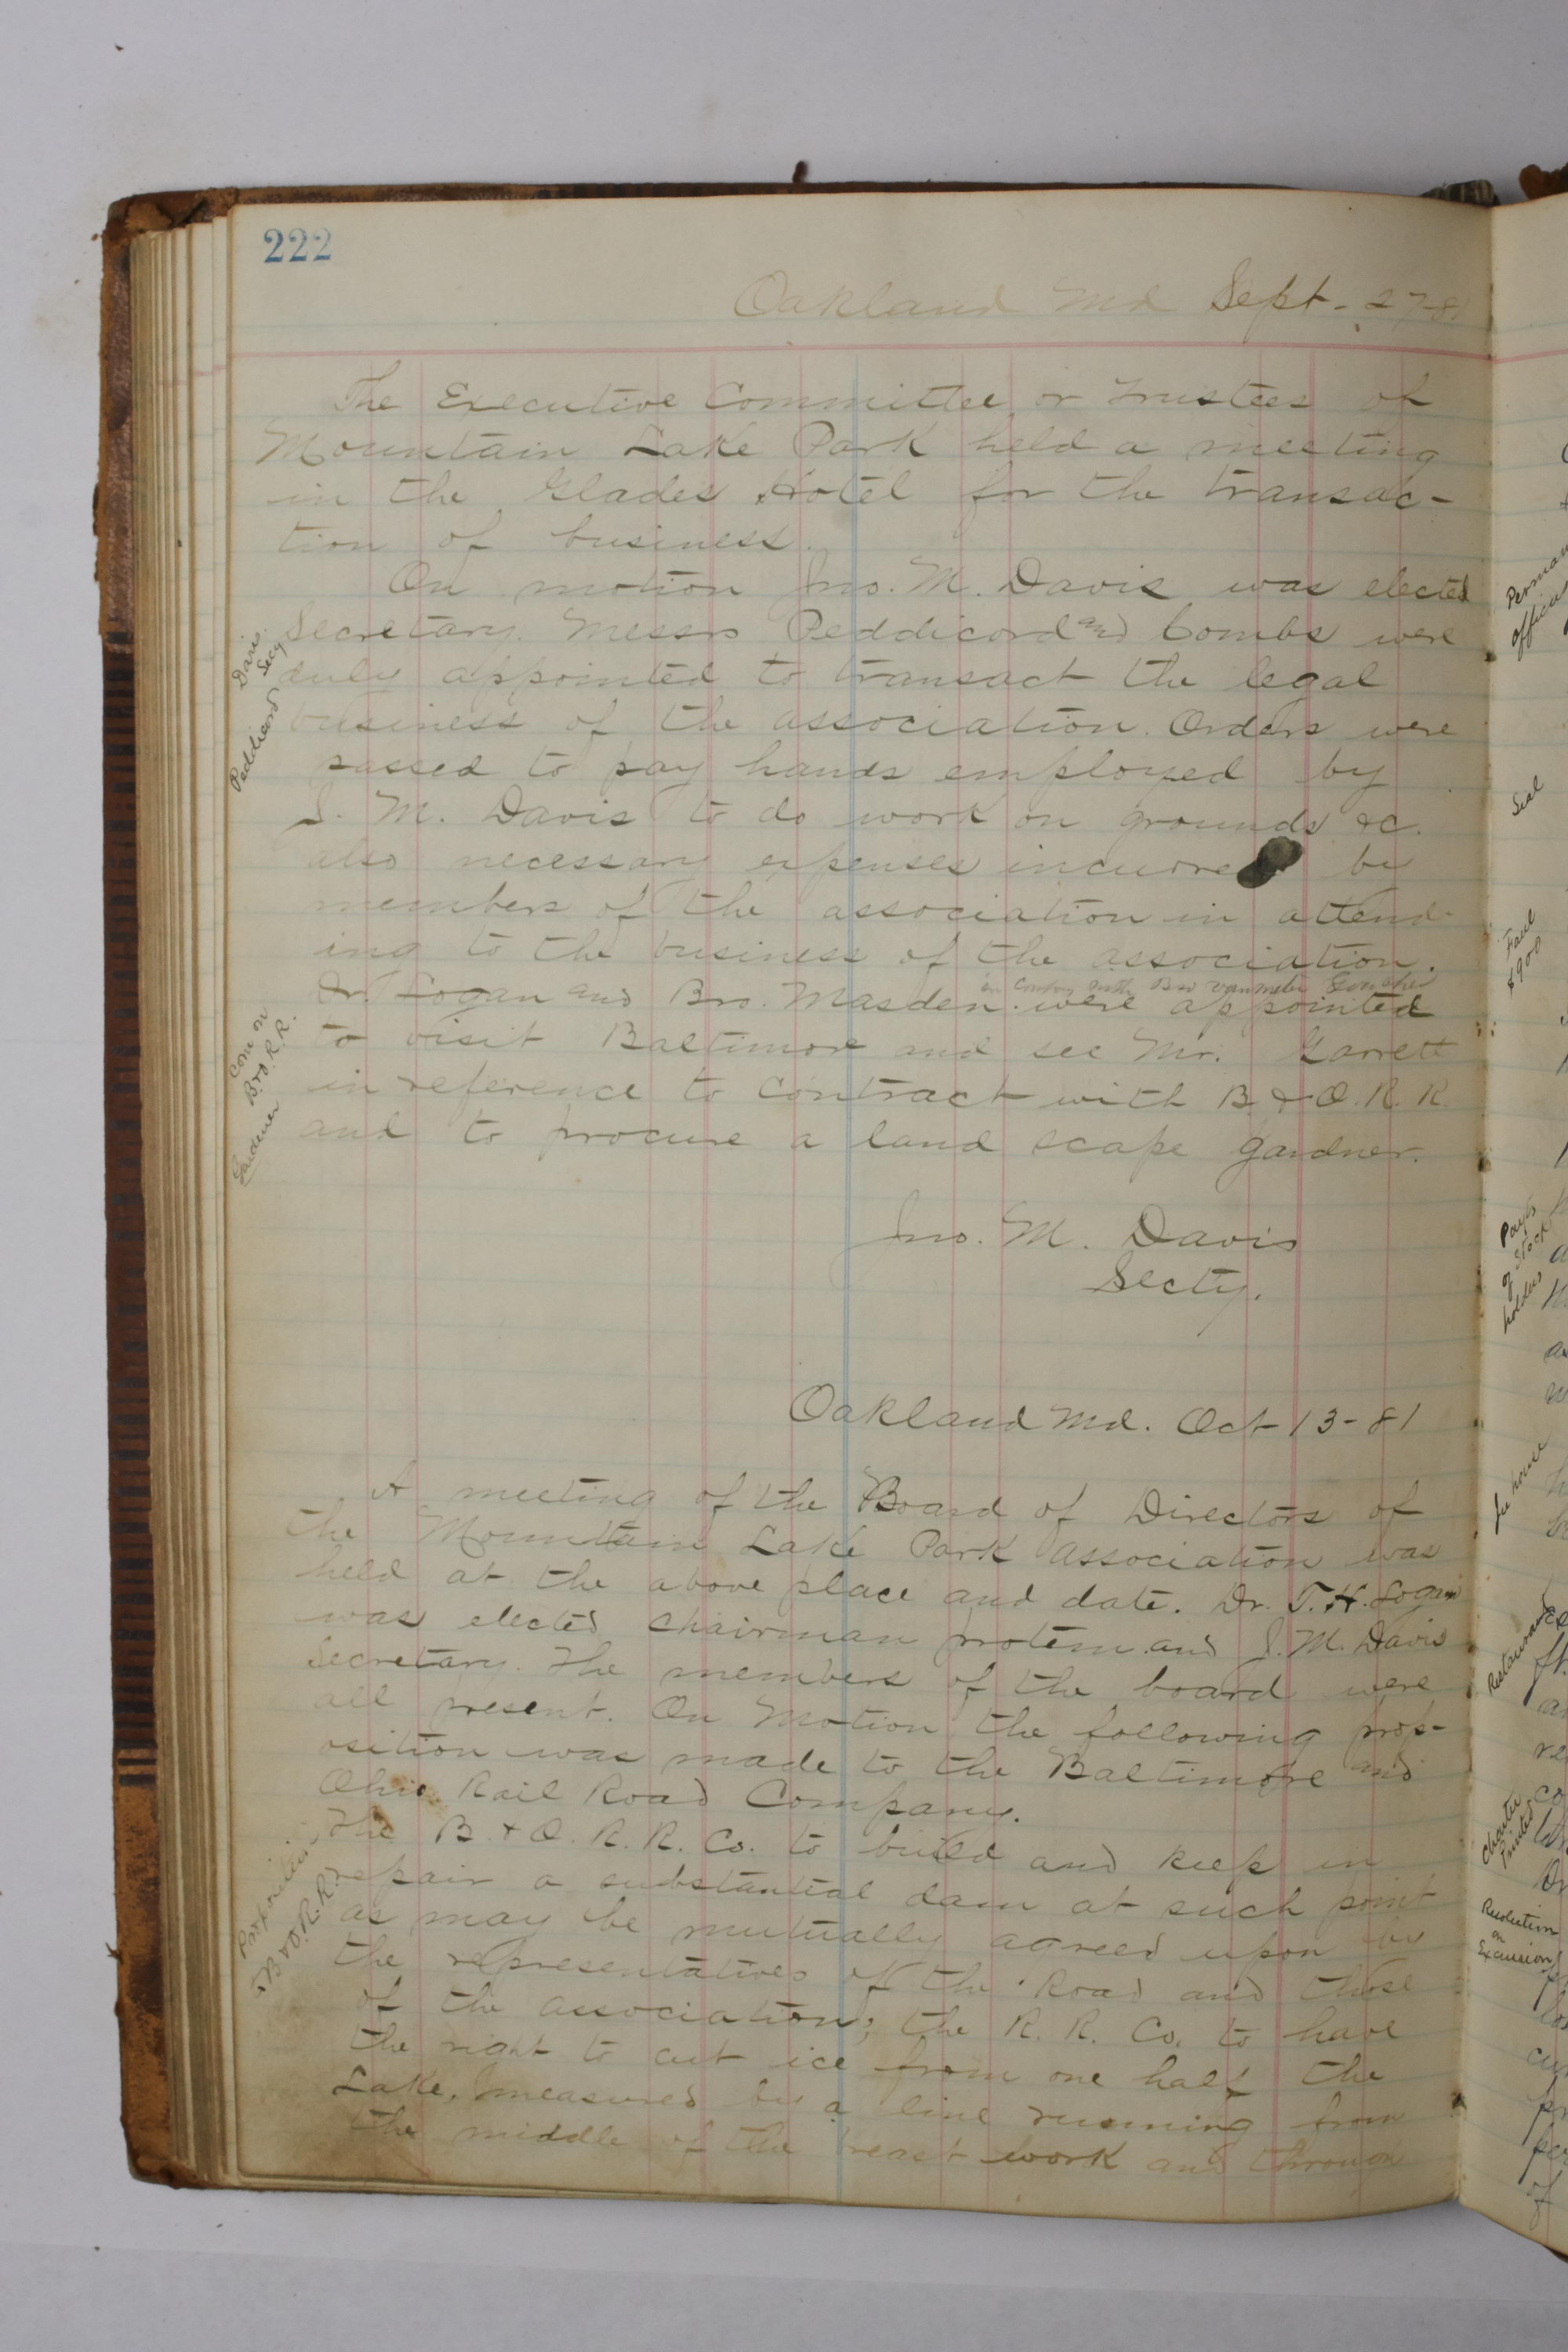 222
Oakland Md Sept - 27-81
The Executive Committee or Trustees of
Mountain Lake Park held a meeting
in the Glades Hotel for the transac-
tion of business.
On motion Jno. M. Davis was elected
Secretary. Messrs Peddicord and Combs were
duly appointed to transact the legal
business of the association. Orders were
passed to pay hands employed by
J. M. Davis to do work on grounds &c.
also necessary expenses incurred by
members of the association in attend-
ing to the business of the association.
in Company with Bro Vanmeter
Dr. Logan and Bro. Masden were appointed
to visit Baltimore and see Mr. Garrett
in reference to Contract with B & O. R. R.
and to procure a land scape gardner.
Jno. M. Davis
Secty.
Davis
Secy
Peddicord
Com on
B&O.R.R.
Gardener
Oakland Md. Oct 13-81
A meeting of the Board of Directors of
the Mountain Lake Park Association was
held at the above place and date. Dr. T. H. Logan
was elected Chairman protem and J. M. Davis
Secretary. The members of the board were
all present. On Motion the following prop-
osition was made to the Baltimore and
Ohio Rail Road Company.
The B. & O. R. R. Co. to build and keep in
repair a substantial dam at such point
as may be mutually agreed upon by
the representatives of the Road and those
of the association; the R. R. Co. to have
the right to cut ice from one half the
Lake, measured by a line running from
the middle of the breast work and through
Proposition
B&O.R.R.
Seal
$900
Payts
of Stock
holders
Ice house
Restaurant
Charter
Printed
Resolution
on
Excursion